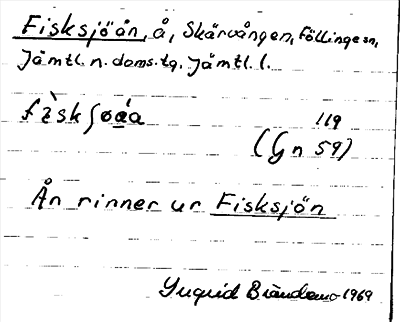 Fisksjöån, å, Skärvången, Föllinge sn,
Jämtl. n. doms. tg, Jämtl. l.
119
(Gn 59)
Ån rinner ur Fisksjön
Ingrid Brändemo 1969